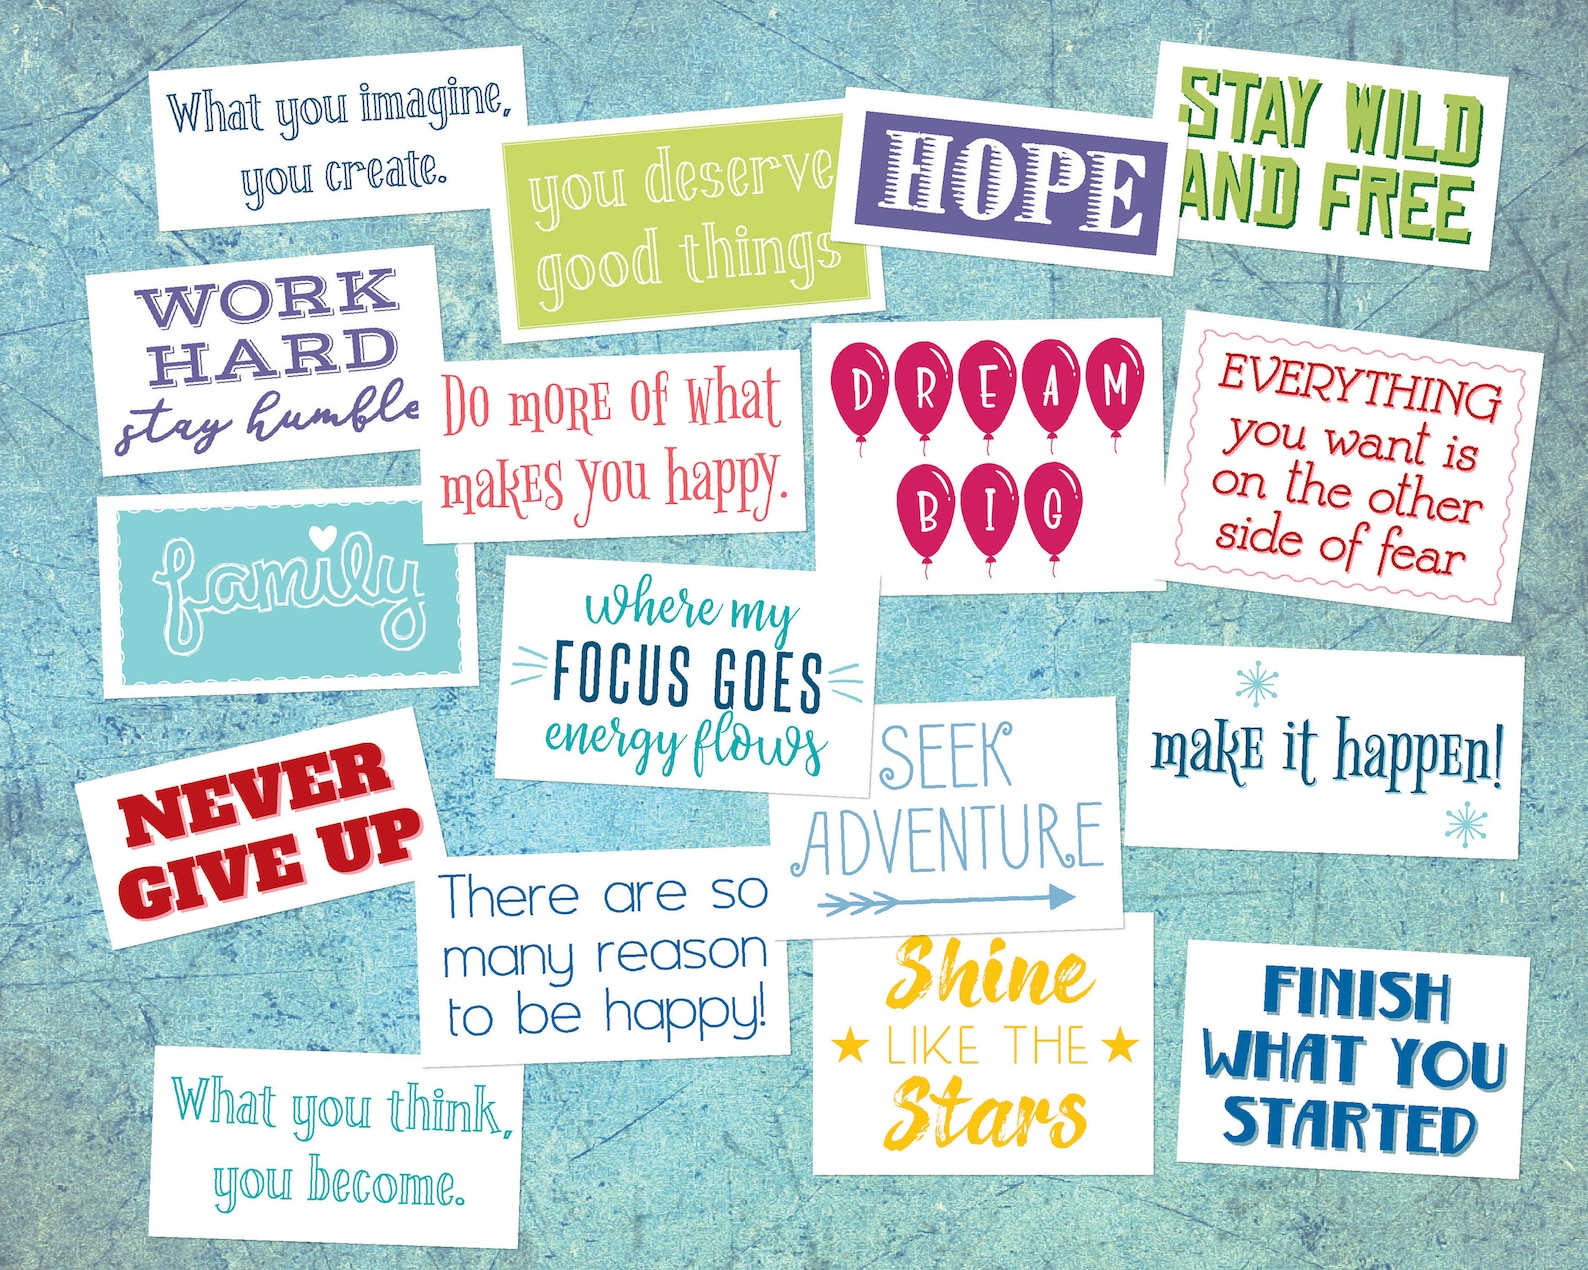 What you imagine,
you create.
you deserve
good things
HOPE
STAY WILD
AND FREE
WORK
HARD
stay humble
Do more of what
makes you happy.
DREAM
BIG
EVERYTHING
you want is
on the other
side of fear
family
where my
FOCUS GOES
energy flows
make it happen!
NEVER
GIVE UP
SEEK
ADVENTURE
There are so
many reason
to be happy!
Shine
LIKE THE
Stars
FINISH
WHAT YOU
STARTED
What you think,
you become.